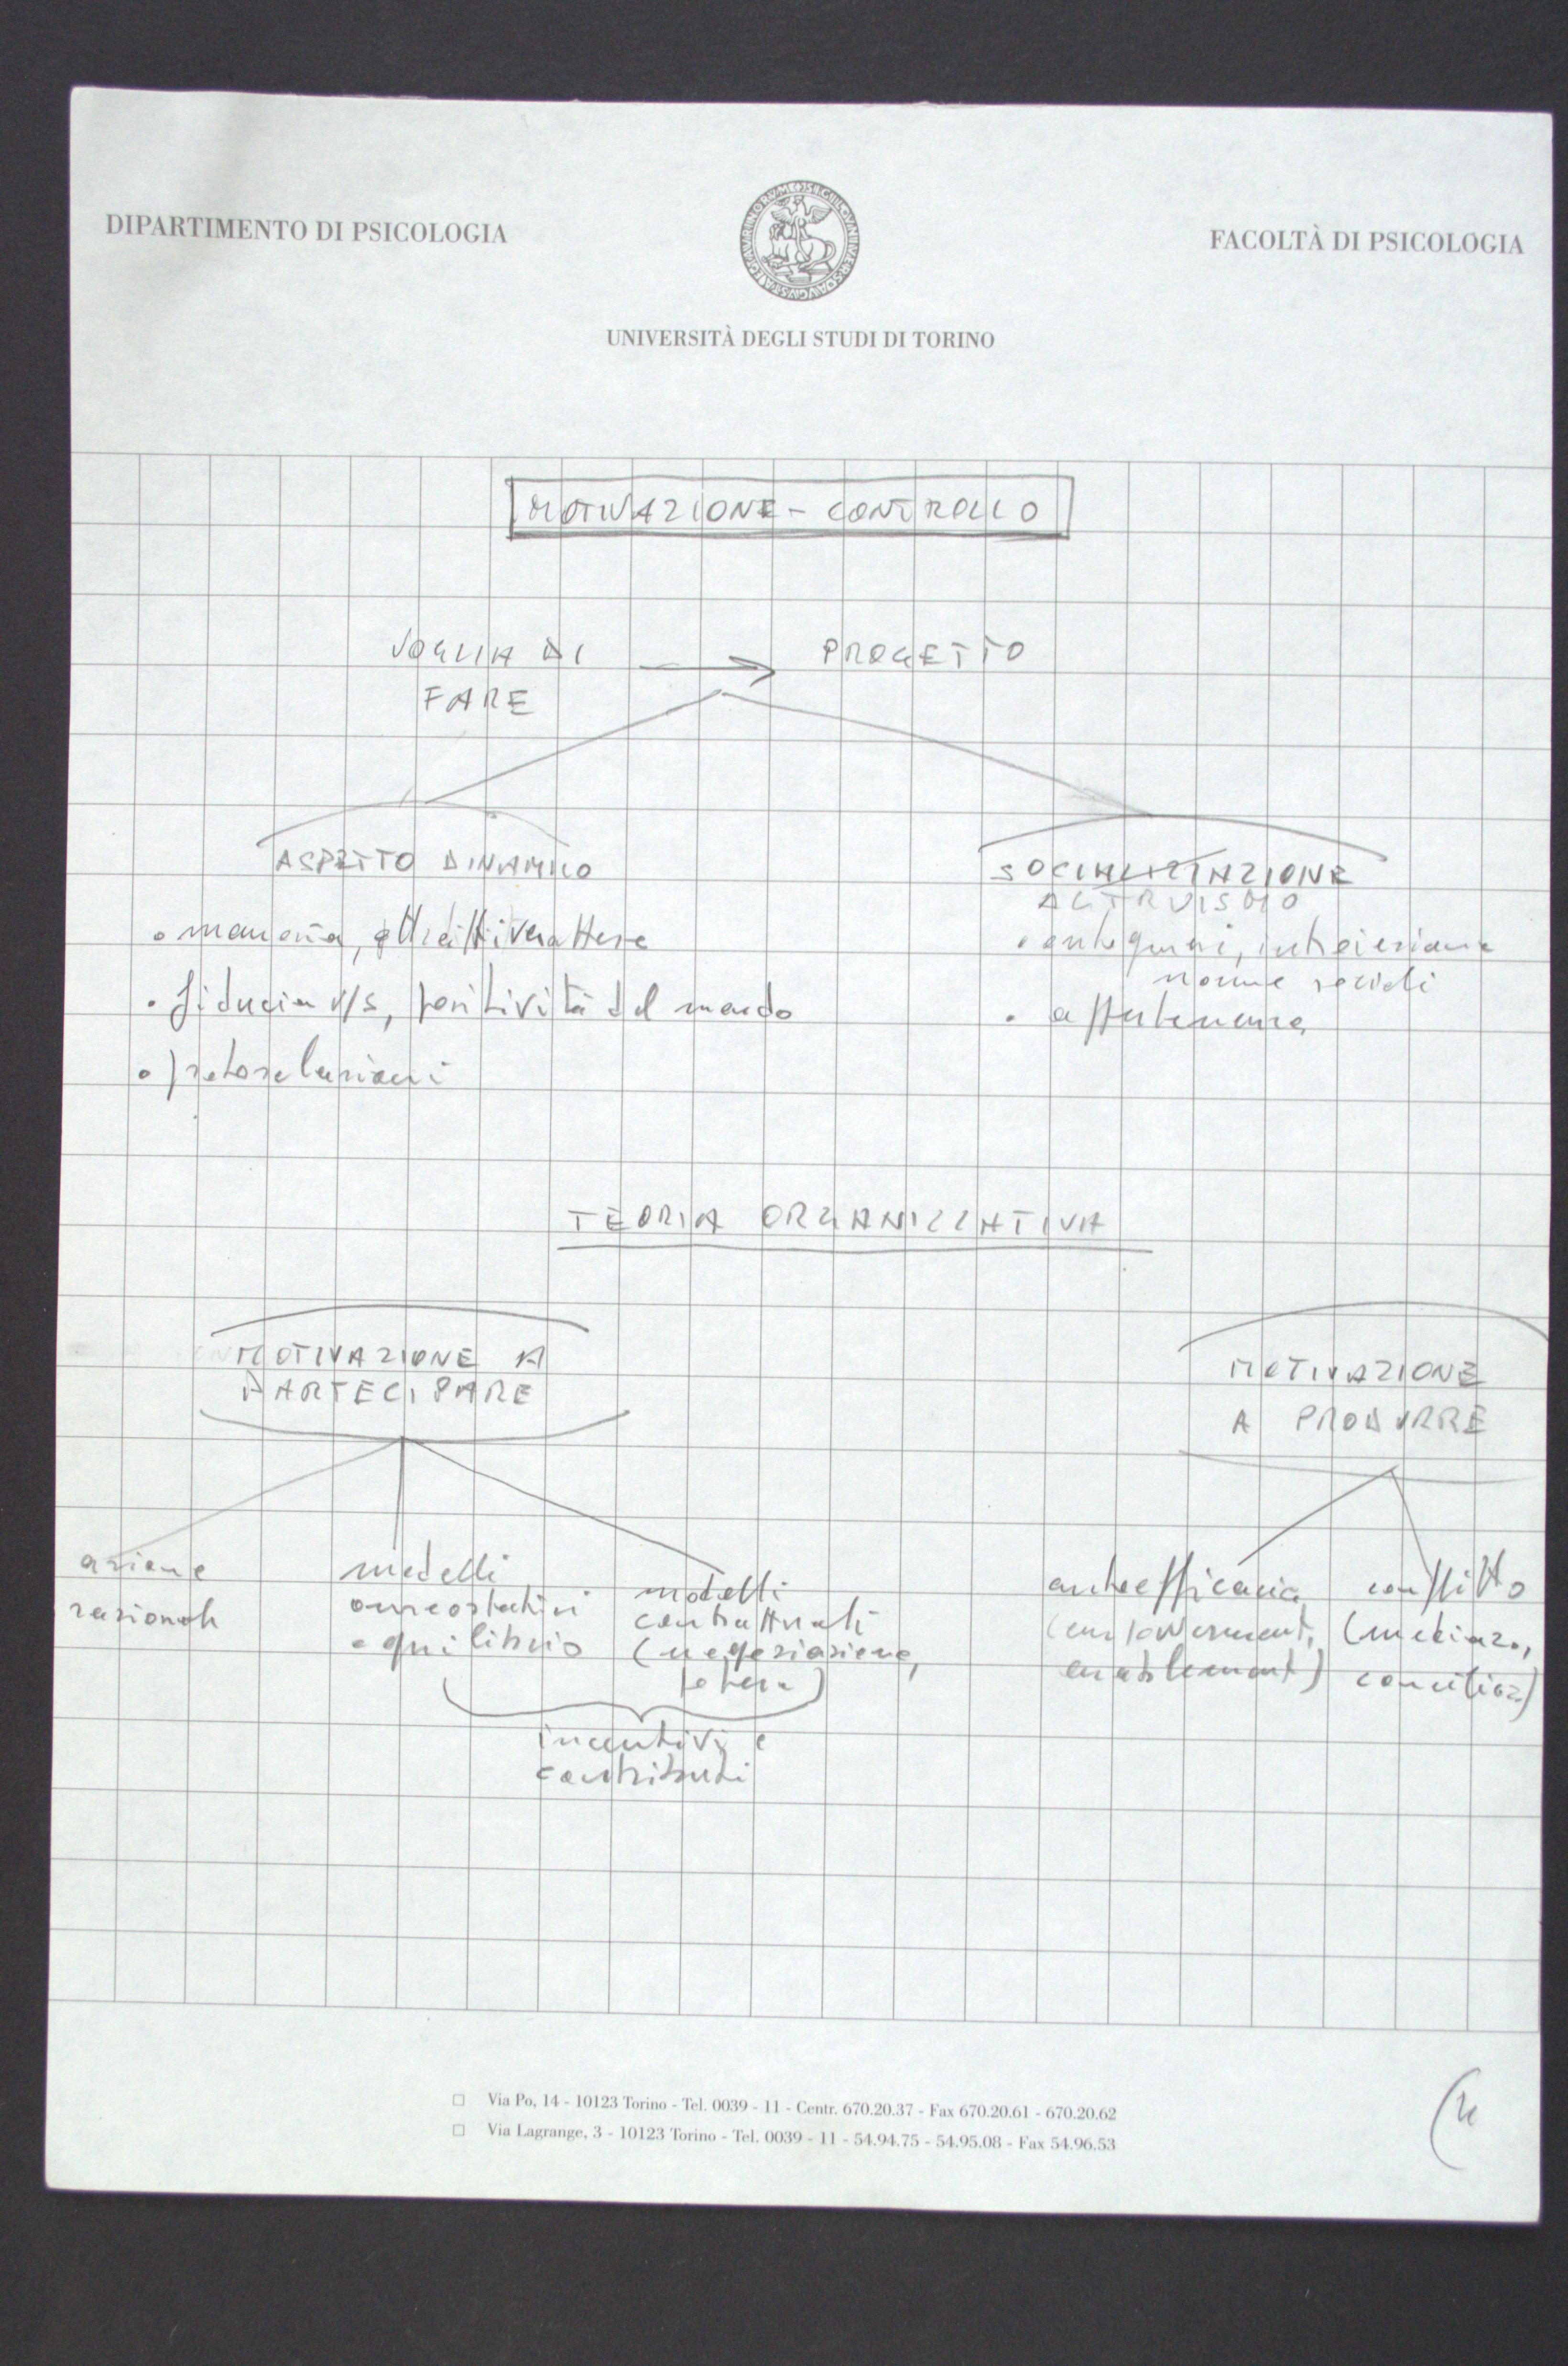 DIPARTIMENTO DI PSICOLOGIA
FACOLTÀ DI PSICOLOGIA
UNIVERSITÀ DEGLI STUDI DI TORINO
MOTIVAZIONE - CONTROLLO
VOGLIA DI
FARE
PROGETTO
ASPETTO DINAMICO
• memoria,
• fiducia v/s, positività del mondo
•
SOCIALIZZAZIONE
ALTRUISMO
• introiezione
norme sociali
• appartenenza
TEORIA ORGANIZZATIVA
MOTIVAZIONE A
PARTECIPARE
MOTIVAZIONE
A PRODURRE
azione
razionale
modelli
omeostatici
equilibrio
modelli
contrattuali
(negoziazione,
potere)
incentivi e
contributi
autoefficacia
(empowerment,
enablement)
conflitto
(mediaz.,
conciliaz)
Via Po, 14 - 10123 Torino - Tel. 0039 - 11 - Centr. 670.20.37 - Fax 670.20.61 - 670.20.62
Via Lagrange, 3 - 10123 Torino - Tel. 0039 - 11 - 54.94.75 - 54.95.08 - Fax 54.96.53